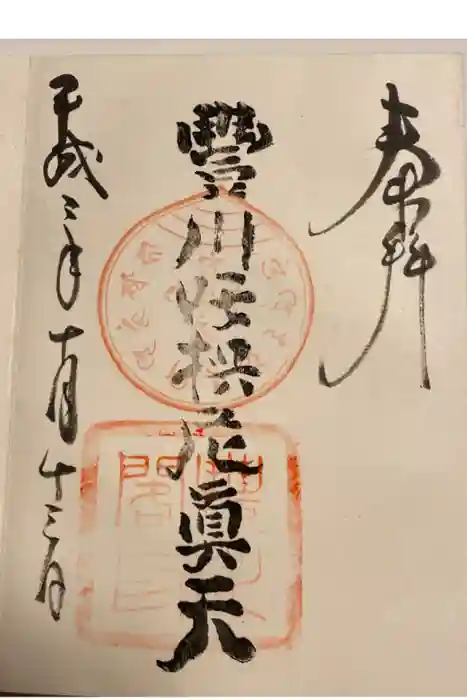 奉拝
豐川吒枳尼眞天
平成三年十月十三日